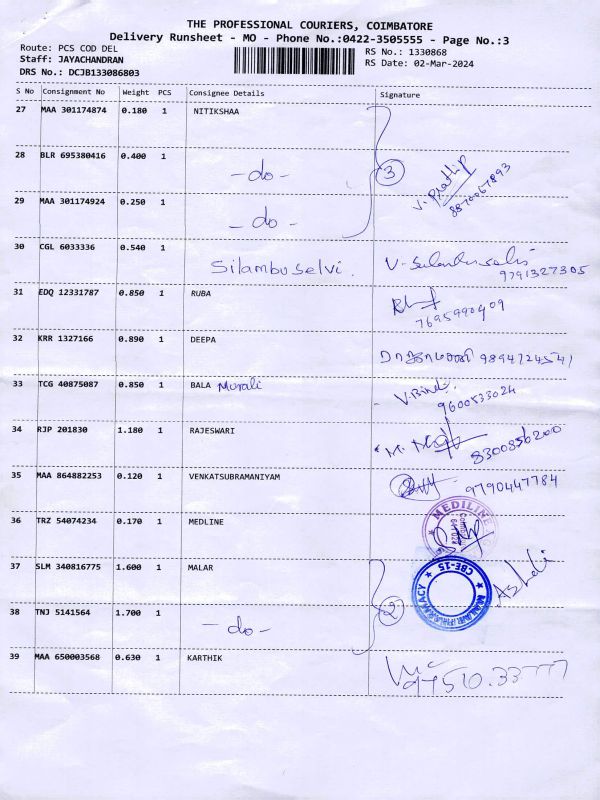 THE PROFESSIONAL COURIERS, COIMBATORE
Delivery Runsheet - MO - Phone No.:0422-3505555 - Page No.:3
Route: PCS COD DEL
RS No.: 1330868
Staff: JAYACHANDRAN
RS Date: 02-Mar-2024
DRS No.: DCJB133086803
S No Consignment No Weight PCS Consignee Details Signature
27 MAA 301174874 0.180 1 NITIKSHAA
28 BLR 695380416 0.400 1 -do- 3 V. Prathip
8870067893
29 MAA 301174924 0.250 1 -do-
30 CGL 6033336 0.540 1 Silambuselvi.
9791327305
31 EDQ 12331787 0.850 1 RUBA
7695990909
32 KRR 1327166 0.890 1 DEEPA 9894724541
33 TCG 40875087 0.850 1 BALA Murali
9600533024
34 RJP 201830 1.180 1 RAJESWARI 8300856200
35 MAA 864882253 0.120 1 VENKATSUBRAMANIYAM 9790447784
36 TRZ 54074234 0.170 1 MEDLINE
37 SLM 340816775 1.600 1 MALAR
CBE-15
38 TNJ 5141564 1.700 1 -do- 2
39 MAA 650003568 0.630 1 KARTHIK
97510.33777